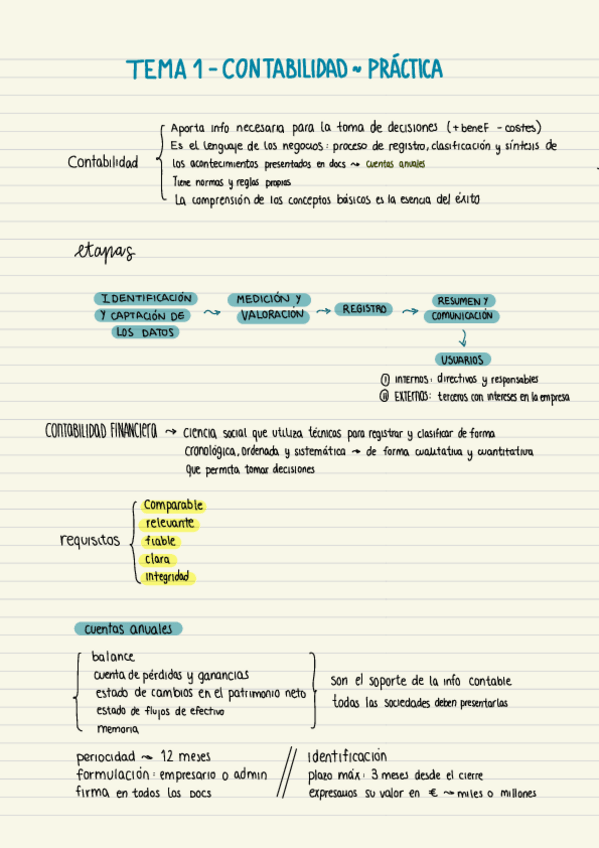 TEMA 1 - CONTABILIDAD ~ PRÁCTICA
Contabilidad
Aporta info necesaria para la toma de decisiones (+ benef - costes)
Es el lenguaje de los negocios: proceso de registro, clasificación y síntesis de
los acontecimientos presentados en docs ~> cuentas anuales
Tiene normas y reglas propias
La comprensión de los conceptos básicos es la esencia del éxito
etapas
IDENTIFICACIÓN
Y CAPTACIÓN DE
LOS DATOS
MEDICIÓN Y
VALORACIÓN
REGISTRO
RESUMEN Y
COMUNICACIÓN
USUARIOS
I INTERNOS: directivos y responsables
II EXTERNOS: terceros con intereses en la empresa
CONTABILIDAD FINANCIERA ~> ciencia social que utiliza técnicas para registrar y clasificar de forma
cronológica, ordenada y sistemática ~> de forma cualitativa y cuantitativa
que permita tomar decisiones
requisitos
comparable
relevante
fiable
clara
integridad
cuentas anuales
balance
cuenta de pérdidas y ganancias
estado de cambios en el patrimonio neto
estado de flujos de efectivo
memoria
son el soporte de la info contable
todas las sociedades deben presentarlas
periocidad ~> 12 meses
formulación: empresario o admin
firma en todos los docs
identificación
plazo máx: 3 meses desde el cierre
expresamos su valor en € ~> miles o millones